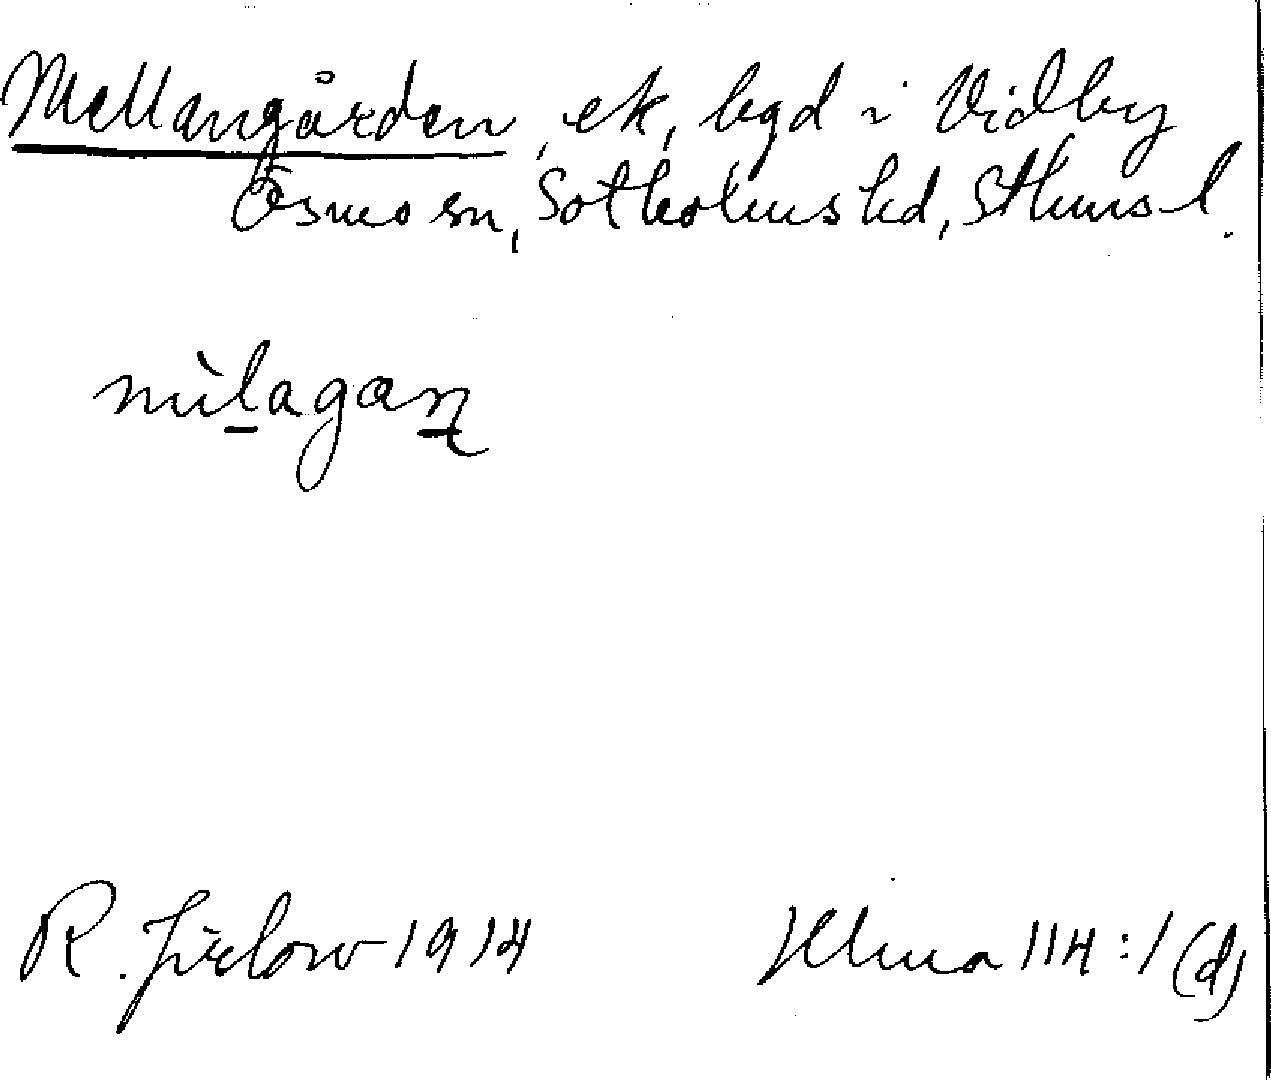 Mellangården, ek, bgd i Vidby
Ösmo sn, Sotholms hd, Sthms l.
mìlagaṉ
R. Jirlow 1914 Ulma 114:1(d)